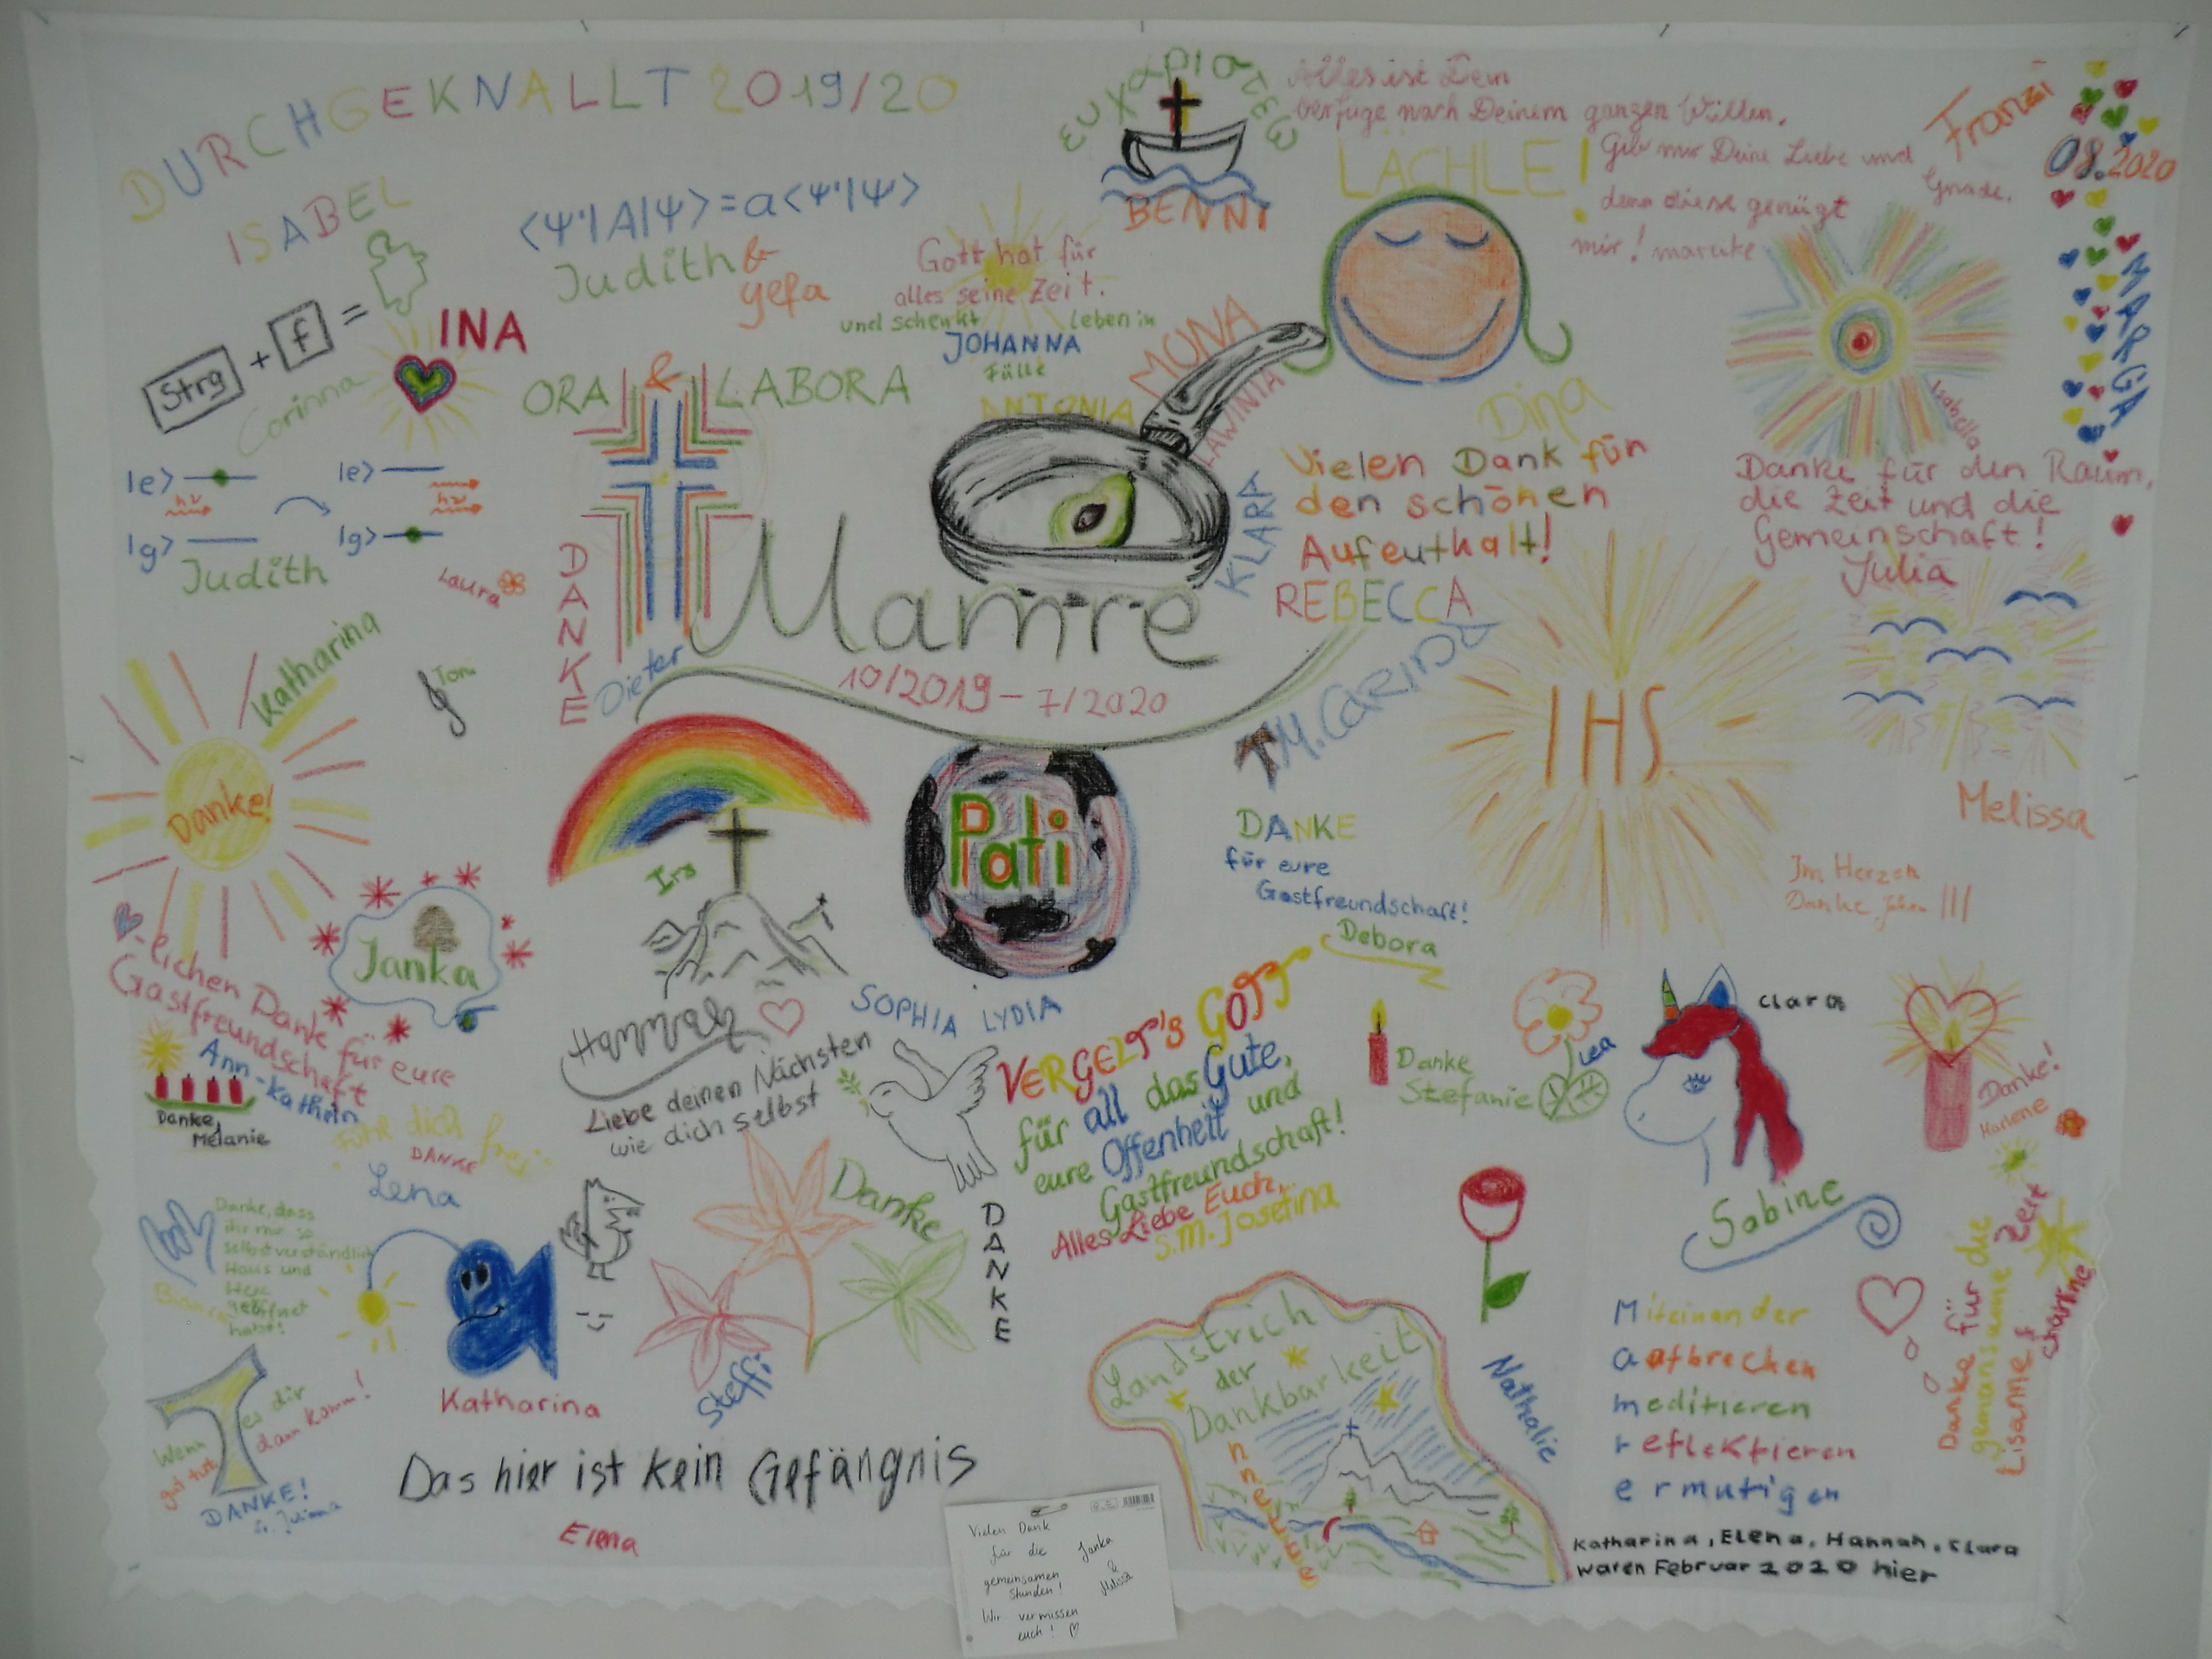 DURCHGEKNALLT 2019/20
ISABEL
Strg + f =
Corinna
INA
⟨Ψ'|A|Ψ⟩ = a⟨Ψ'|Ψ⟩
Judith &
yefa
Gott hat für
alles seine Zeit.
und schenkt Leben in
JOHANNA
Fülle
ευχαριστειν
BENNI
Alles ist Dein
verfüge nach Deinem ganzen Willen.
Gib mir Deine Liebe und
Gnade,
denn diese genügt
mir! mareike
LÄCHLE!
Franzi
08.2020
MARGA
Isabella
Dina
MONA
LAWINIA
ANTONIA
KLARA
ORA & LABORA
DANKE
Dieter
|e> |e>
hν hν
|g> |g>
Judith
Laura
Katharina
Toni
Danke!
Mamre
10/2019 – 7/2020
Vielen Dank für
den schönen
Aufenthalt!
REBECCA
M. CARINA
Danke für den Raum,
die Zeit und die
Gemeinschaft!
Julia
IHS
Melissa
Im Herzen
Danke,
Pati
Iris
DANKE
für eure
Gastfreundschaft!
Debora
Janka
-lichen Dank für eure
Gastfreundschaft
Ann-Kathrin
Danke,
Melanie
Hannah
SOPHIA LYDIA
Liebe deinen Nächsten
wie dich selbst
VERGELT'S GOTT
für all das Gute,
eure Offenheit und
Gastfreundschaft!
Alles Liebe Euch,
S.M. Josefina
Danke
Stefanie
Lea
Clara
Danke!
Marlene
Fühl dich frei
DANKE
Lena
Danke, dass
ihr mir so
selbstverständlich
Haus und
Herz
geöffnet
habt!
Katharina
Danke
Steffi
DANKE
Sabine
Wenn
es dir
gut tut,
dann komm!
DANKE!
Sr. Juliana
Das hier ist kein Gefängnis
Elena
Landstrich
der
Dankbarkeit
Nathalie
Miteinander
aufbrechen
meditieren
reflektieren
ermutigen
Danke für die
gemeinsame Zeit
Lisanne &
Katharina, Elena, Hannah, Clara
waren Februar 2020 hier
Vielen Dank
für die
gemeinsamen
Stunden!
Wir vermissen
euch!
Janka
&
Melissa